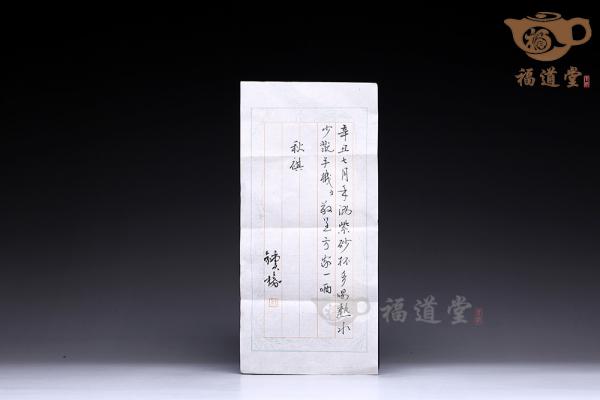 福道堂
辛丑七月泐紫砂杯多喝熱水
少手機敬呈方家一哂
秋祺
福道堂